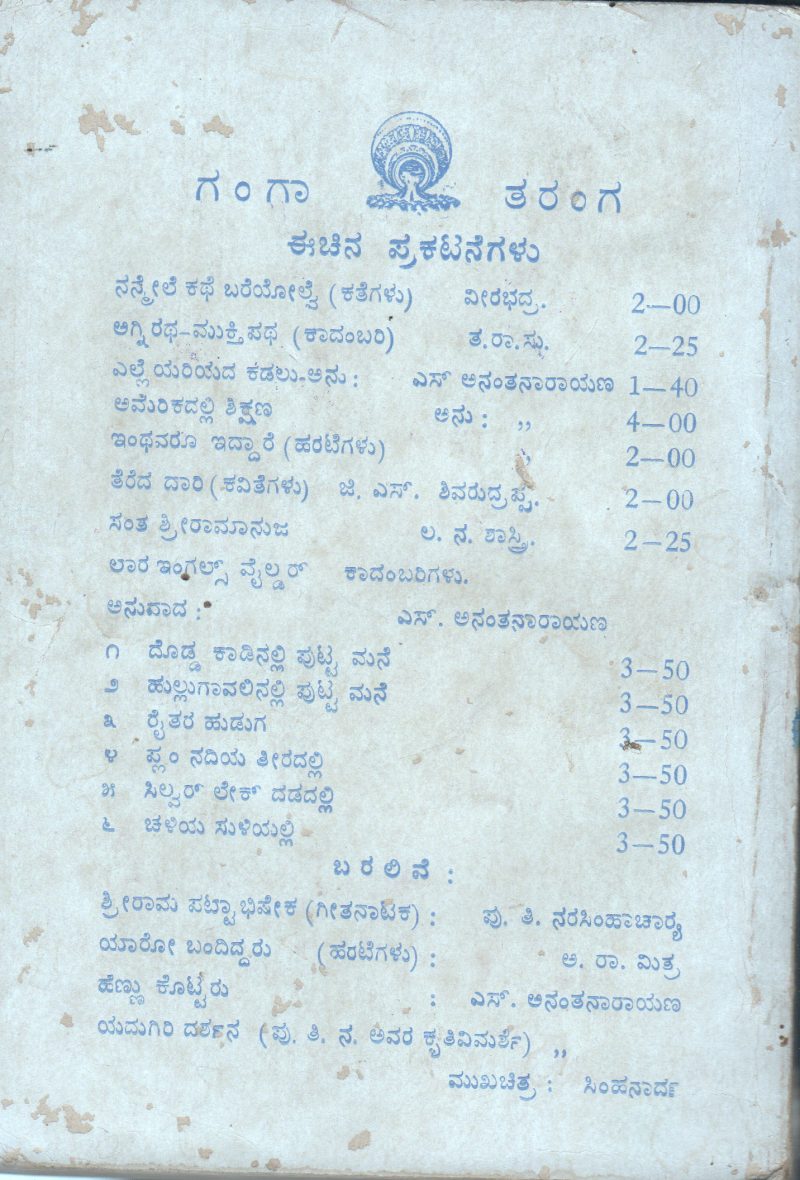 ಗಂಗಾ ತರಂಗ
ಈಚಿನ ಪ್ರಕಟನೆಗಳು
ನನ್ಮೇಲೆ ಕಥೆ ಬರೆಯೋಲ್ವೆ (ಕತೆಗಳು) ವೀರಭದ್ರ. 2—00
ಅಗ್ನಿರಥ-ಮುಕ್ತಿಪಥ (ಕಾದಂಬರಿ) ತ.ರಾ.ಸು. 2—25
ಎಲ್ಲೆಯರಿಯದ ಕಡಲು-ಅನು : ಎಸ್ ಅನಂತನಾರಾಯಣ 1—40
ಅಮೆರಿಕದಲ್ಲಿ ಶಿಕ್ಷಣ ಅನು : ,, 4—00
ಇಂಥವರೂ ಇದ್ದಾರೆ (ಹರಟೆಗಳು) ,, 2—00
ತೆರೆದ ದಾರಿ (ಕವಿತೆಗಳು) ಜಿ. ಎಸ್. ಶಿವರುದ್ರಪ್ಪ. 2—00
ಸಂತ ಶ್ರೀರಾಮಾನುಜ ಲ. ನ. ಶಾಸ್ತ್ರಿ. 2—25
ಲಾರ ಇಂಗಲ್ಸ್ ವೈಲ್ಡರ್ ಕಾದಂಬರಿಗಳು.
ಅನುವಾದ : ಎಸ್. ಅನಂತನಾರಾಯಣ
೧ ದೊಡ್ಡ ಕಾಡಿನಲ್ಲಿ ಪುಟ್ಟ ಮನೆ 3—50
೨ ಹುಲ್ಲುಗಾವಲಿನಲ್ಲಿ ಪುಟ್ಟ ಮನೆ 3—50
೩ ರೈತರ ಹುಡುಗ 3—50
೪ ಪ್ಲಂ ನದಿಯ ತೀರದಲ್ಲಿ 3—50
೫ ಸಿಲ್ವರ್ ಲೇಕ್ ದಡದಲ್ಲಿ 3—50
೬ ಚಳಿಯ ಸುಳಿಯಲ್ಲಿ 3—50
ಬರಲಿವೆ :
ಶ್ರೀರಾಮ ಪಟ್ಟಾಭಿಷೇಕ (ಗೀತನಾಟಕ) : ಪು. ತಿ. ನರಸಿಂಹಾಚಾರ‍್ಯ
ಯಾರೋ ಬಂದಿದ್ದರು (ಹರಟೆಗಳು) : ಅ. ರಾ. ಮಿತ್ರ
ಹೆಣ್ಣು ಕೊಟ್ಟರು : ಎಸ್. ಅನಂತನಾರಾಯಣ
ಯದುಗಿರಿ ದರ್ಶನ (ಪು. ತಿ. ನ. ಅವರ ಕೃತಿವಿಮರ್ಶೆ) ,,
ಮುಖಚಿತ್ರ : ಸಿಂಹನಾರ್ದ